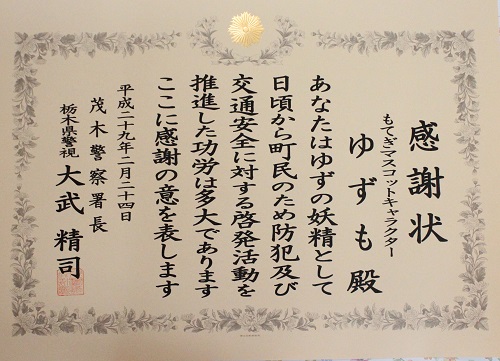 感謝状
もてぎマスコットキャラクター
ゆずも殿
あなたはゆずの妖精として
日頃から町民のため防犯及び
交通安全に対する啓発活動を
推進した功労は多大であります
ここに感謝の意を表します
平成二十九年二月二十四日
茂木警察署長
栃木県警視 大武精司